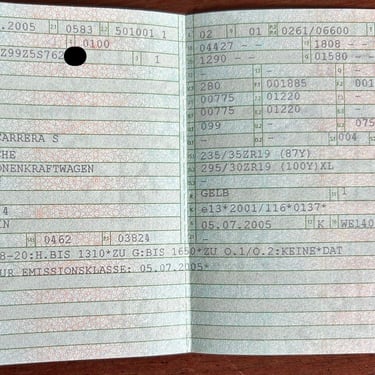 .2005 0583 501001 1
0100
Z99Z5S762 1
CARRERA S
CHE
ONENKRAFTWAGEN
4
IN
0462 03824
02 01 0261/06600 -
04427 -- 1808 --
1290 -- 01580 --
-- -- --
280 001885 001
00775 01220 --
00775 01220 --
099 -- 075
-- -- 004 --
235/35ZR19 (87Y)
295/30ZR19 (100Y)XL
GELB 1
e13*2001/116*0137*
05.07.2005 K WE140
8-20:H.BIS 1310*ZU G:BIS 1650*ZU O.1/O.2:KEINE*DAT
UR EMISSIONSKLASSE: 05.07.2005*